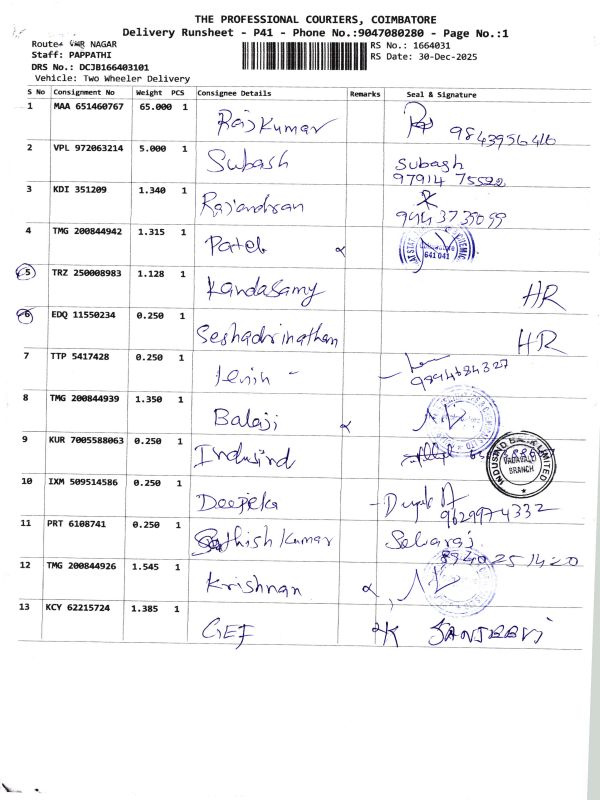 THE PROFESSIONAL COURIERS, COIMBATORE
Delivery Runsheet - P41 - Phone No.:9047080280 - Page No.:1
Route: GMR NAGAR
Staff: PAPPATHI
DRS No.: DCJB166403101
Vehicle: Two Wheeler Delivery
RS No.: 1664031
RS Date: 30-Dec-2025
S No Consignment No Weight PCS Consignee Details Remarks Seal & Signature
1 MAA 651460767 65.000 1 Rajkumar 9843956416
2 VPL 972063214 5.000 1 Subash Subash
97914 75522
3 KDI 351209 1.340 1 Rajandran
4 TMG 200844942 1.315 1 Patel 641 041
5 TRZ 250008983 1.128 1 Kandasamy HR
6 EDQ 11550234 0.250 1 Seshadrinathan HR
7 TTP 5417428 0.250 1 Lenin 9894684327
8 TMG 200844939 1.350 1 Balaji
9 KUR 7005588063 0.250 1 Indusind INDUSIND BANK LIMITED
VADAVALLI
BRANCH
10 IXM 509514586 0.250 1 Deepika
9629974332
11 PRT 6108741 0.250 1 Sathish Kumar Selvaraj
8940251420
12 TMG 200844926 1.545 1 Krishnan
13 KCY 62215724 1.385 1 GEF SANJEEVI